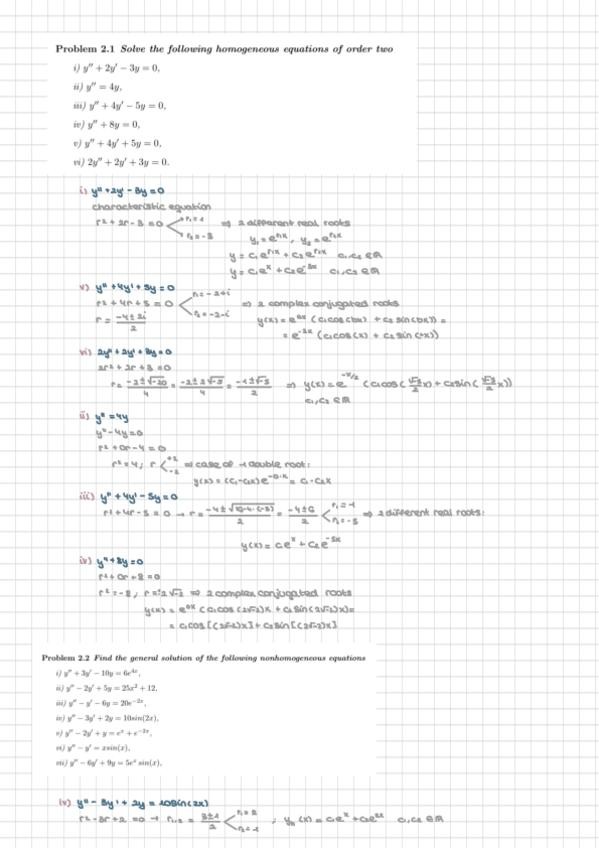 Problem 2.1 Solve the following homogeneous equations of order two
i) y″ + 2y′ − 3y = 0,
ii) y″ = 4y,
iii) y″ + 4y′ − 5y = 0,
iv) y″ + 8y = 0,
v) y″ + 4y′ + 5y = 0,
vi) 2y″ + 2y′ + 3y = 0.
i) y″ + 2y′ − 3y = 0
characteristic equation
r² + 2r − 3 = 0 < r₁ = 1 ⇒ 2 different real roots
r₂ = −3
y₁ = e^{r₁x}, y₂ = e^{r₂x}
y = c₁e^{r₁x} + c₂e^{r₂x} c₁,c₂ ∈ ℝ
y = c₁e^x + c₂e^{−3x} c₁,c₂ ∈ ℝ
v) y″ + 4y′ + 5y = 0
r² + 4r + 5 = 0 < r₁ = −2+i ⇒ 2 complex conjugated roots
r₂ = −2−i
r = (−4 ± 2i)/2 y(x) = e^{ax} (c₁cos(bx) + c₂ sin(bx)) =
= e^{−2x} (c₁cos(x) + c₂ sin(x))
vi) 2y″ + 2y′ + 3y = 0
2r² + 2r + 3 = 0
r = (−2 ± √−20)/4 = (−2 ± 2√−5)/4 = (−1 ± √−5)/2 ⇒ y(x) = e^{−x/2} (c₁cos(√5/2 x) + c₂sin(√5/2 x))
c₁,c₂ ∈ ℝ
ii) y″ = 4y
y″ − 4y = 0
r² + 0r − 4 = 0
r² = 4; r < +2 −2 ⇒ case of 1 double root:
iii) y″ + 4y′ − 5y = 0
r² + 4r − 5 = 0 → r = (−4 ± 6)/2 < r₁ = 1 r₂ = −5 ⇒ 2 different real roots:
y(x) = c₁e^x + c₂e^{−5x}
iv) y″ + 8y = 0
r² + 0r + 8 = 0
r² = −8; r = ±2√−2 ⇒ 2 complex conjugated roots
y(x) = e^{0x} (c₁cos(2√2)x + c₂ sin(2√2)x) =
= c₁cos[(2√2)x] + c₂ sin[(2√2)x]
Problem 2.2 Find the general solution of the following nonhomogeneous equations
i) y″ + 3y′ − 10y = 6e^{4x},
ii) y″ − 2y′ + 5y = 25x² + 12,
iii) y″ − y′ − 6y = 20e^{−2x},
iv) y″ − 3y′ + 2y = 10sin(2x),
v) y″ − 2y′ + y = e^x + e^{−2x},
vi) y″ − y′ = xsin(x),
vii) y″ − 6y′ + 9y = 5e^x sin(x),
iv) y″ − 3y′ + 2y = 10sin(2x)
r² − 3r + 2 = 0 → r₁,₂ = (3 ± 1)/2 < r₁ = 2 r₂ = 1 ; yₕ(x) = c₁e^x + c₂e^{2x} c₁,c₂ ∈ ℝ